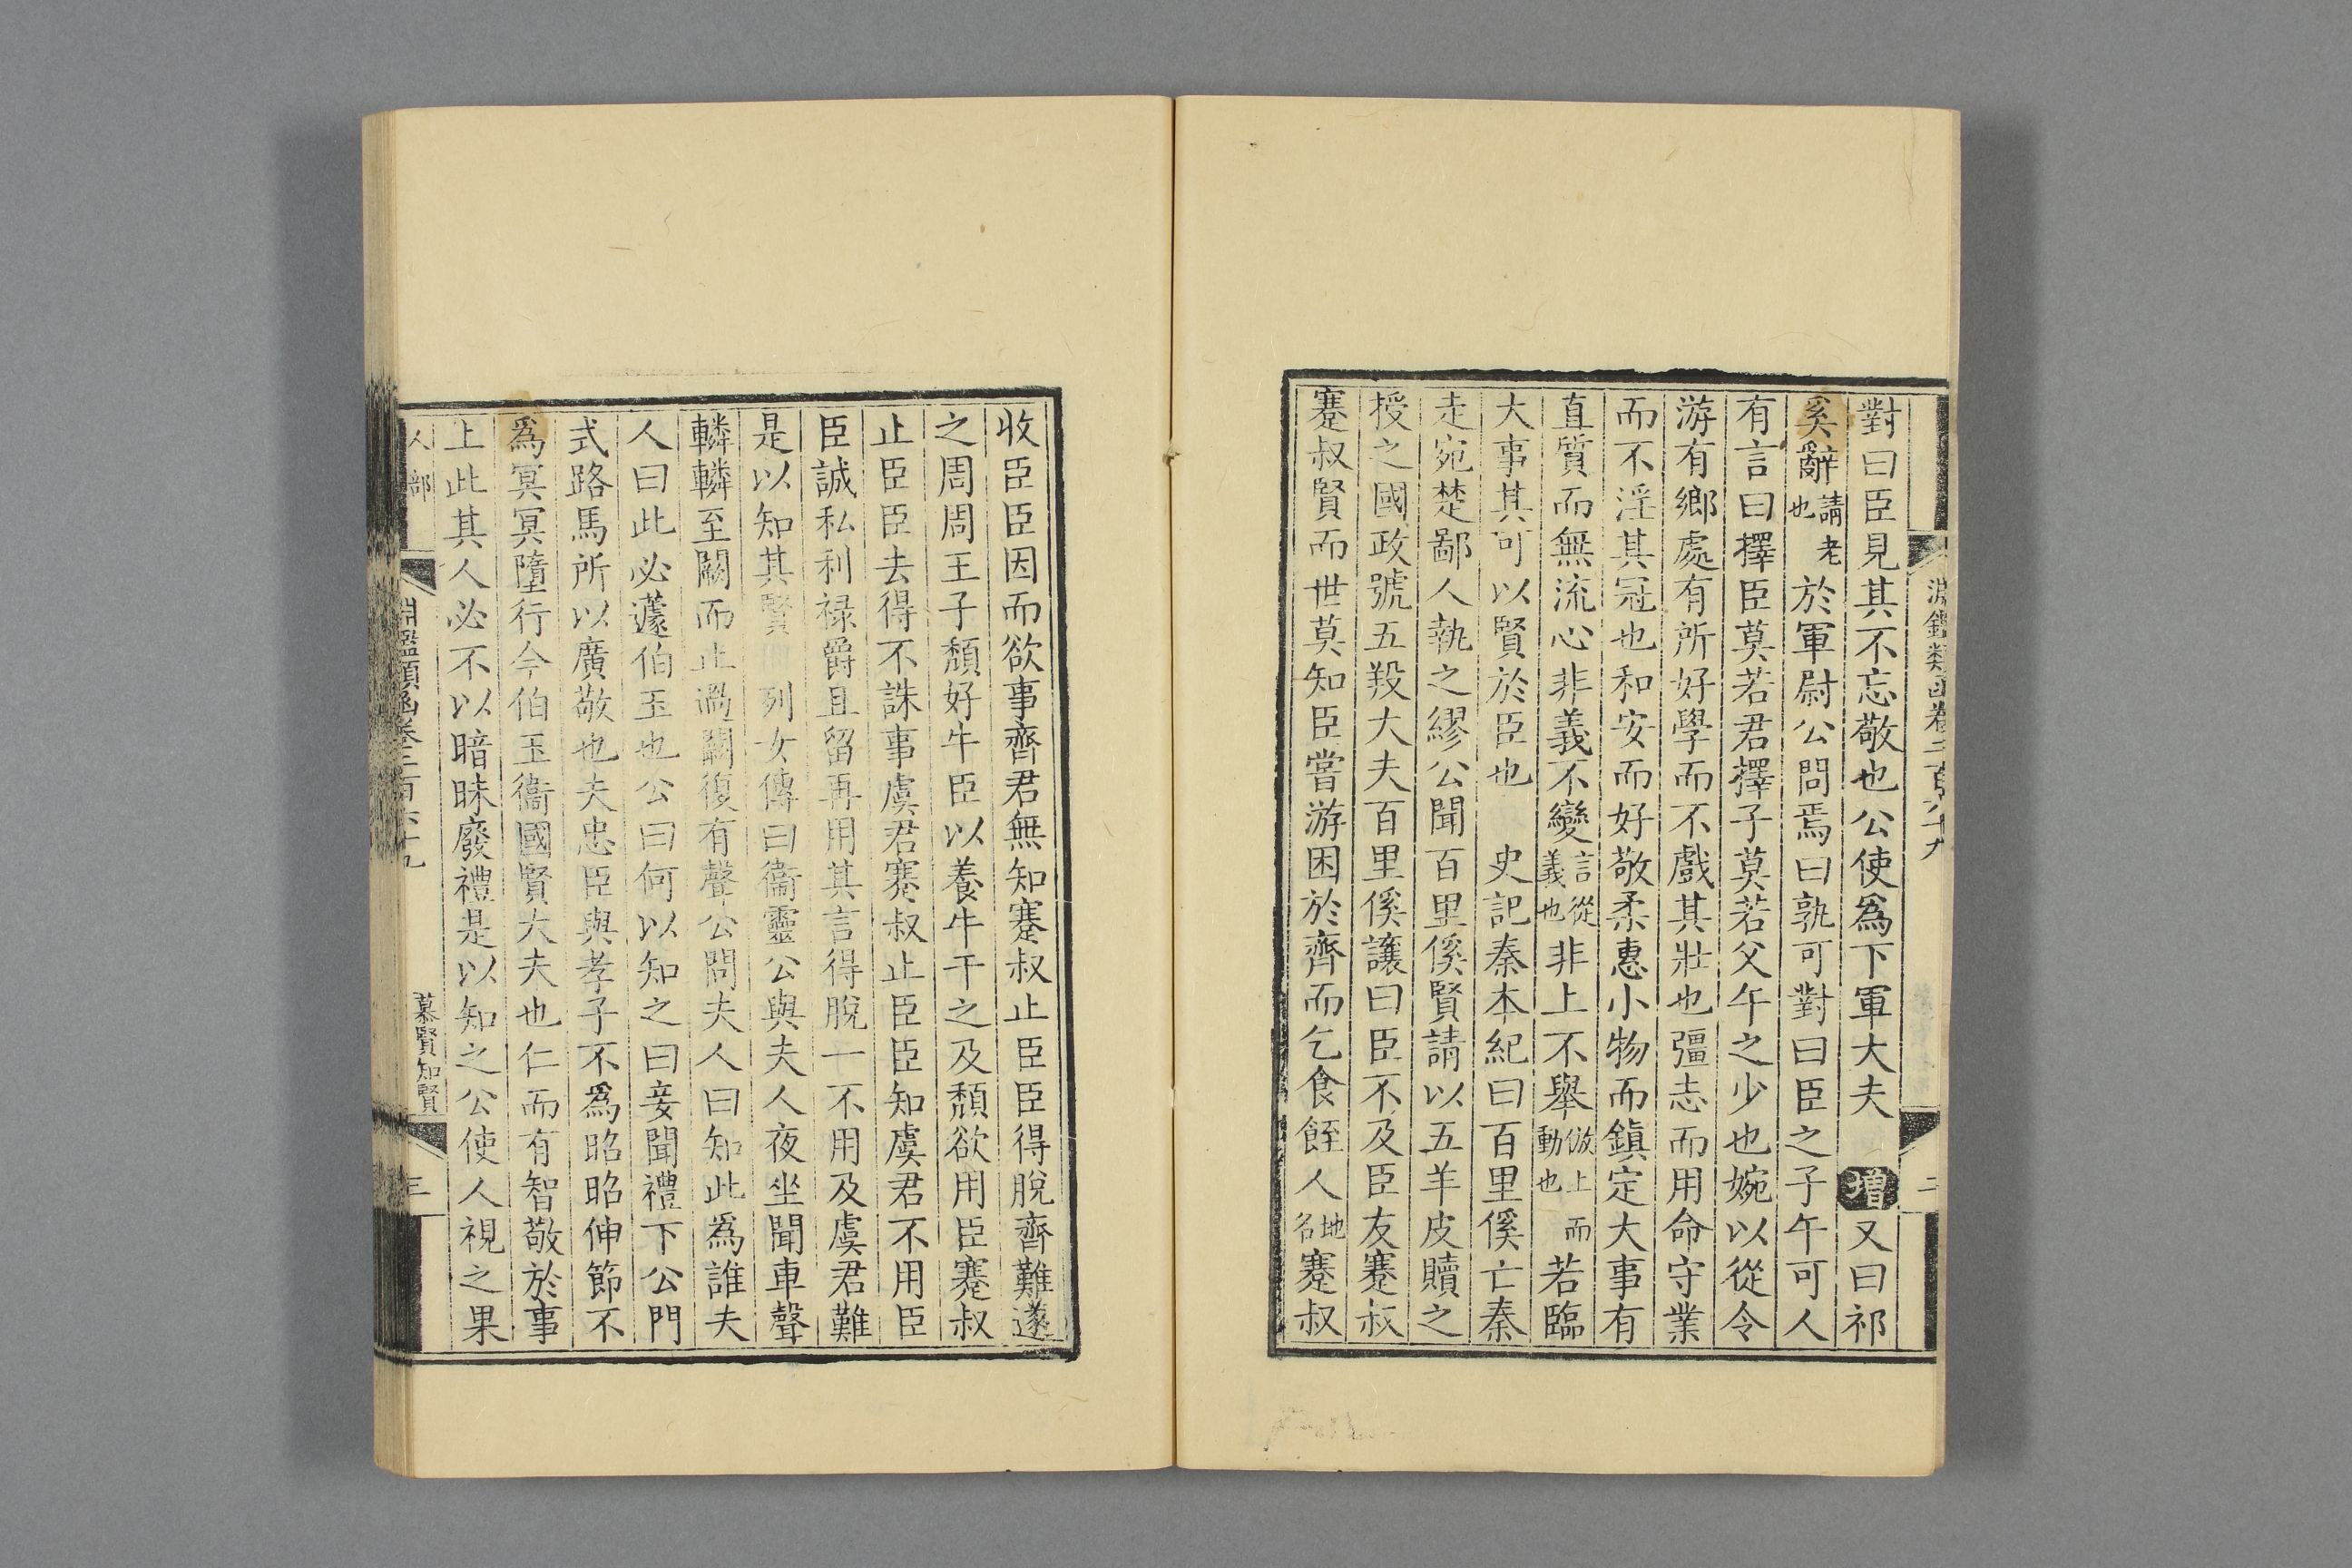 淵鑑類函卷二百六十九
二
對曰臣見其不忘敬也公使爲下軍大夫 增又曰祁
奚辭請老也於軍尉公問焉曰孰可對曰臣之子午可人
有言曰擇臣莫若君擇子莫若父午之少也婉以從令
游有鄉處有所好學而不戲其壯也彊志而用命守業
而不淫其冠也和安而好敬柔惠小物而鎮定大事有
直質而無流心非義不變言從義也非上不舉倣上而動也若臨
大事其可以賢於臣也 史記秦本紀曰百里傒亡秦
走宛楚鄙人執之繆公聞百里傒賢請以五羊皮贖之
授之國政號五羖大夫百里傒讓曰臣不及臣友蹇叔
蹇叔賢而世莫知臣嘗游困於齊而乞食銍人地名蹇叔
收臣臣因而欲事齊君無知蹇叔止臣臣得脫齊難遂
之周周王子頹好牛臣以養牛干之及頹欲用臣蹇叔
止臣臣去得不誅事虞君蹇叔止臣臣知虞君不用臣
臣誠私利祿爵且留再用其言得脫一不用及虞君難
是以知其賢 列女傳曰衞靈公與夫人夜坐聞車聲
轔轔至闕而止過闕復有聲公問夫人曰知此爲誰夫
人曰此必蘧伯玉也公曰何以知之曰妾聞禮下公門
式路馬所以廣敬也夫忠臣與孝子不爲昭昭伸節不
爲冥冥墮行今伯玉衞國賢大夫也仁而有智敬於事
上此其人必不以暗昧廢禮是以知之公使人視之果
人部
淵鑑類函卷二百六十九
慕賢知賢
三